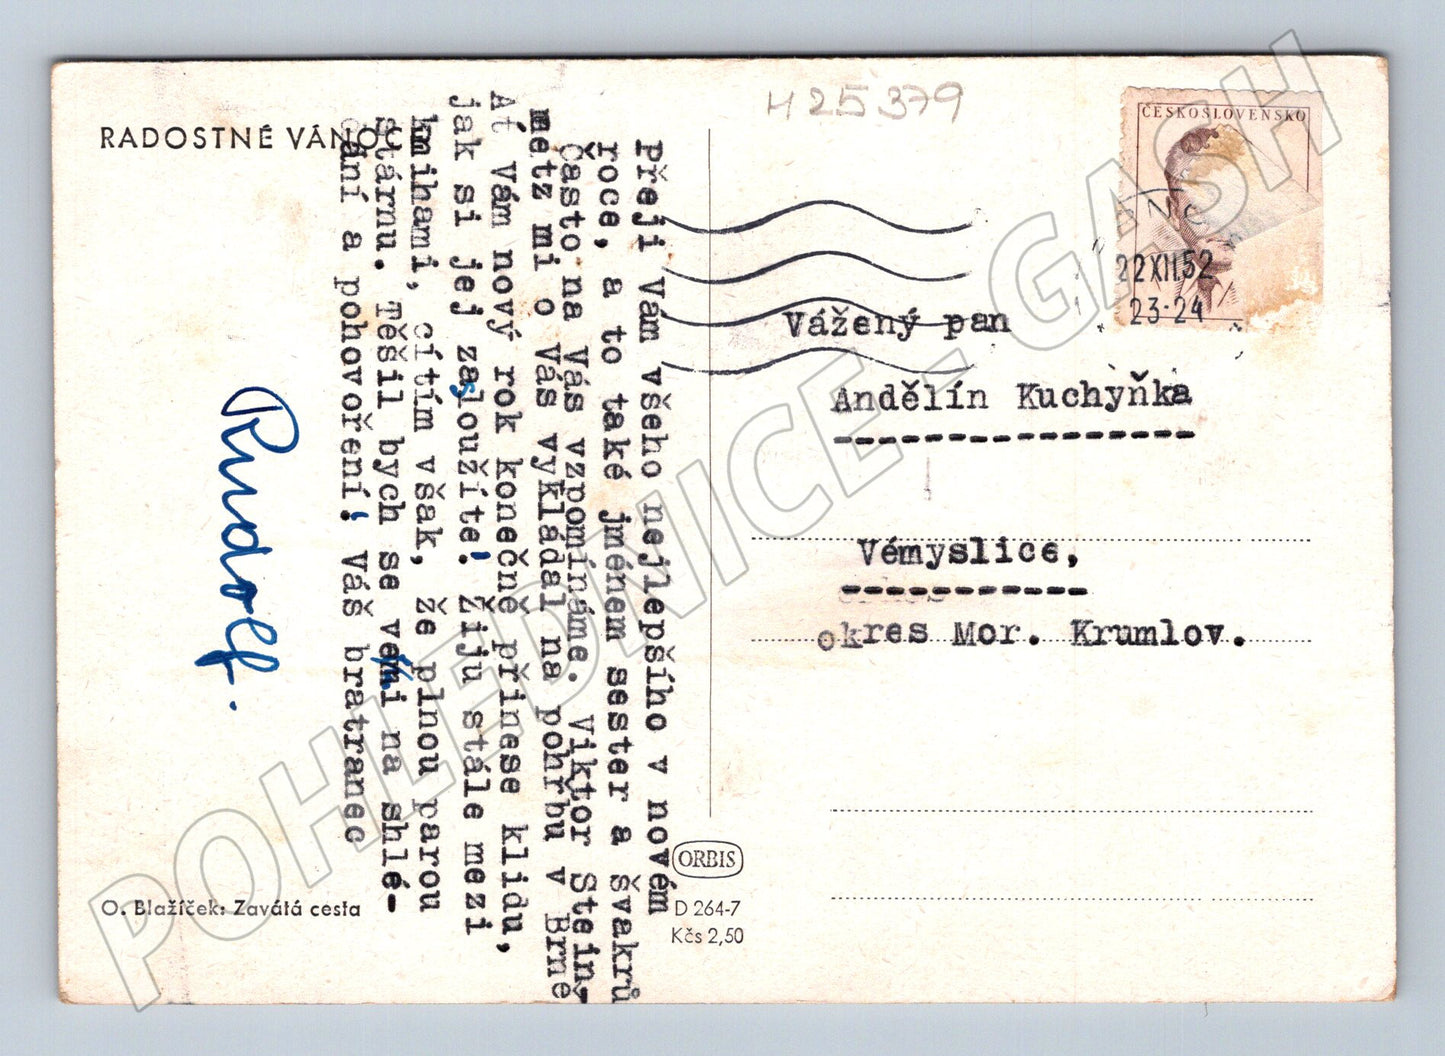 H 25379
RADOSTNÉ VÁNOC
Přeji Vám všeho nejlepšího v novém
roce, a to také jménem sester a švakrů
Často na Vás vzpomínáme. Viktor Stein-
metz mi o Vás vykládal na pohřbu v Brně
Ať Vám nový rok konečně přinese klidu,
jak si jej zasloužíte! Žiju stále mezi
knihami, cítím však, že plnou parou
stárnu. Těšil bych se velmi na shlé-
dání a pohovoření! Váš bratranec
Rudolf.
O. Blažíček: Zavátá cesta
ORBIS
D 264-7
Kčs 2,50
ČESKOSLOVENSKO
22 XII. 52
23-24
Vážený pan
Andělín Kuchyňka
Vémyslice,
okres Mor. Krumlov.
POHLEDNICE - GASH